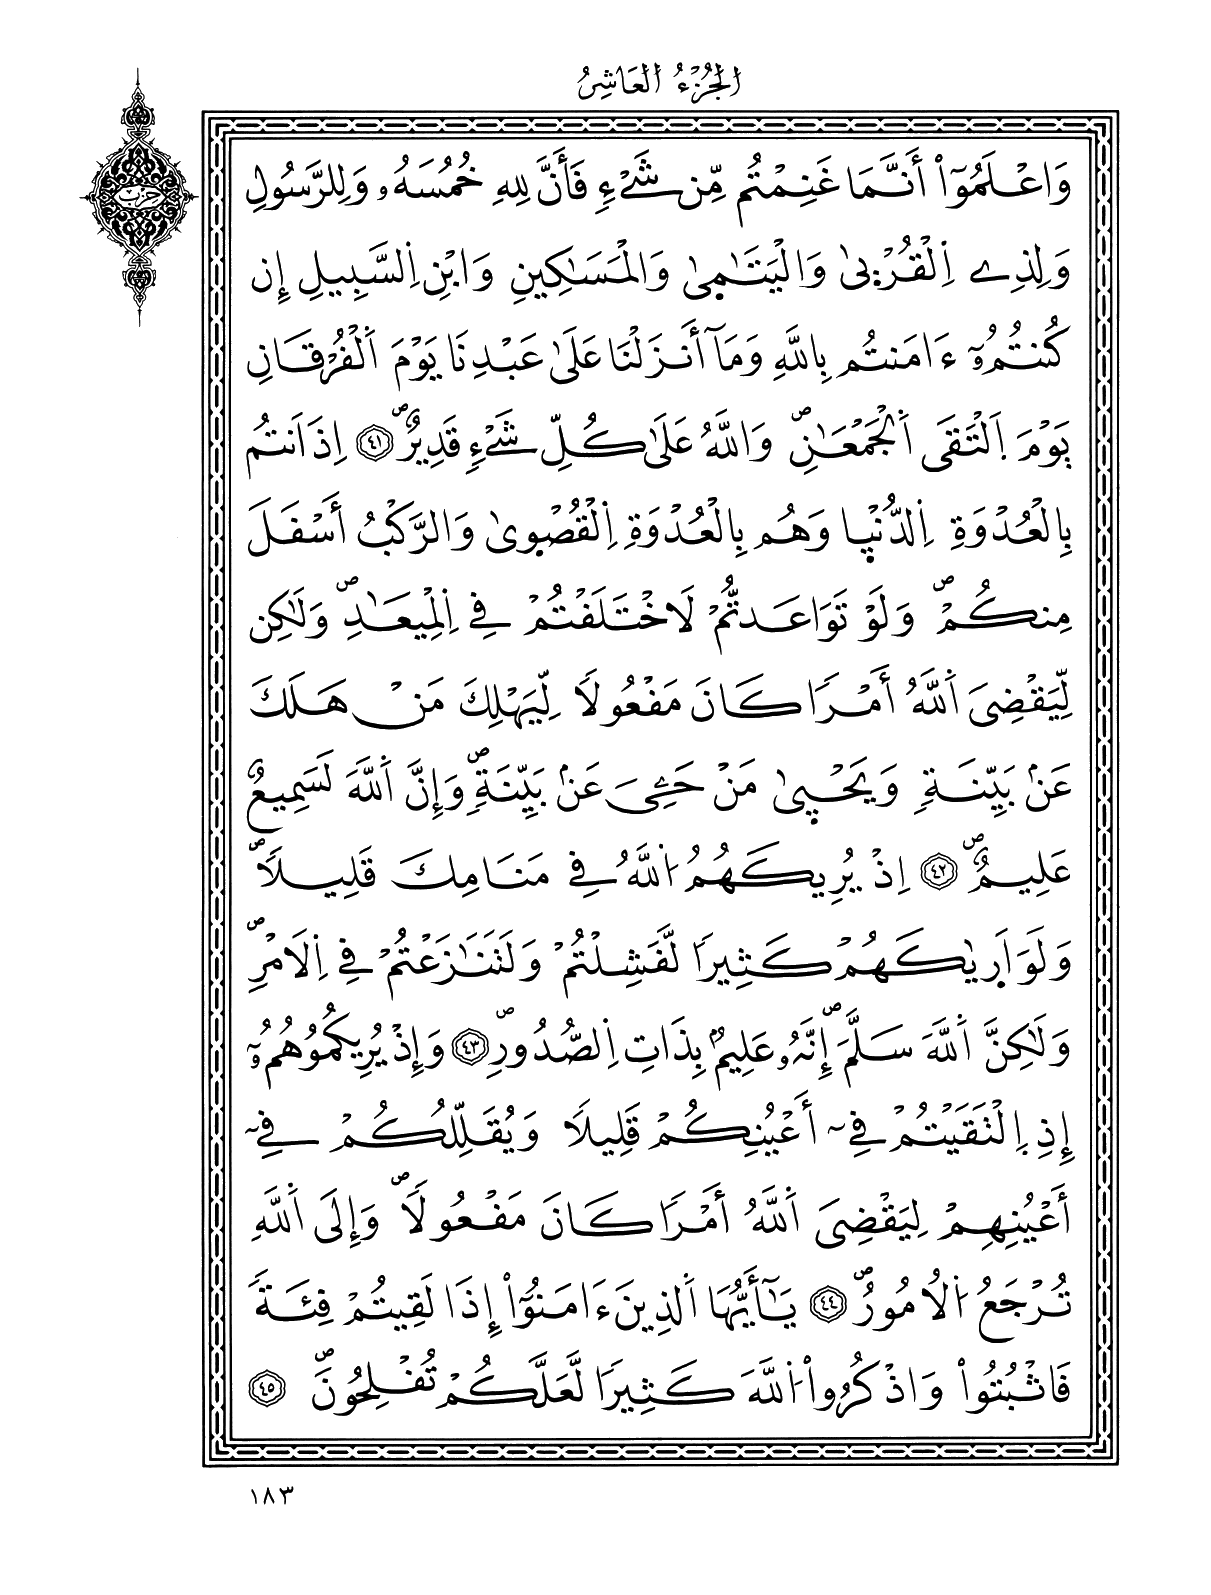 الجُزْءُ العَاشِرُ
حزب
وَاعْلَمُوٓاْ أَنَّمَا غَنِمْتُم مِّن شَےْءٖ فَأَنَّ لِلهِ خُمُسَهُۥ وَلِلرَّسُولِ
وَلِذِے اِ۬لْقُرْب۪يٰ وَالْيَتَٰم۪يٰ وَالْمَسَٰكِينِ وَابْنِ اِ۬لسَّبِيلِ إِن
كُنتُمُۥٓ ءَامَنتُم بِاللَّهِ وَمَآ أَنزَلْنَا عَلَىٰ عَبْدِنَا يَوْمَ اَ۬لْفُرْقَانِ
يَوْمَ اَ۪لْتَقَى اَ۬لْجَمْعَٰنِۖ وَاللَّهُ عَلَىٰ كُلِّ شَےْءٖ قَدِيرٌۖ ٤١ اِذَ اَنتُم
بِالْعُدْوَةِ اِ۬لدُّنْي۪ا وَهُم بِالْعُدْوَةِ اِ۬لْقُصْو۪يٰ وَالرَّكْبُ أَسْفَلَ
مِنكُمْۖ وَلَوْ تَوَاعَدتُّمْ لَاخْتَلَفْتُمْ فِے اِ۬لْمِيعَٰدِۖ وَلَٰكِن
لِّيَقْضِىَ اَ۬للَّهُ أَمْراٗ كَانَ مَفْعُولاٗ لِّيَهْلِكَ مَنْ هَلَكَ
عَنۢ بَيِّنَةٖ وَيَحْي۪يٰ مَنْ حَيِىَ عَنۢ بَيِّنَةٖۖ وَإِنَّ اَ۬للَّهَ لَسَمِيعٌ
عَلِيمٌۖ ٤٢ اِذْ يُرِيكَهُمُ اُ۬للَّهُ فِے مَنَامِكَ قَلِيلاٗۖ
وَلَوَ اَر۪يٰكَهُمْ كَثِيراٗ لَّفَشِلْتُمْ وَلَتَنَٰزَعْتُمْ فِے اِ۬لَامْرِۖ
وَلَٰكِنَّ اَ۬للَّهَ سَلَّمَۖ إِنَّهُۥ عَلِيمُۢ بِذَاتِ اِ۬لصُّدُورِۖ ٤٣ وَإِذْ يُرِيكُمُوهُمُۥٓ
إِذِ اِ۪لْتَقَيْتُمْ فِےٓ أَعْيُنِكُمْ قَلِيلاٗ وَيُقَلِّلُكُمْ فِےٓ
أَعْيُنِهِمْ لِيَقْضِىَ اَ۬للَّهُ أَمْراٗ كَانَ مَفْعُولاٗۖ وَإِلَى اَ۬للَّهِ
تُرْجَعُ اُ۬لُامُورُۖ ٤٤ يَٰٓأَيُّهَا اَ۬لذِينَ ءَامَنُوٓاْ إِذَا لَقِيتُمْ فِئَةٗ
فَاثْبُتُواْ وَاذْكُرُواْ اُ۬للَّهَ كَثِيراٗ لَّعَلَّكُمْ تُفْلِحُونَۖ ٤٥
١٨٣